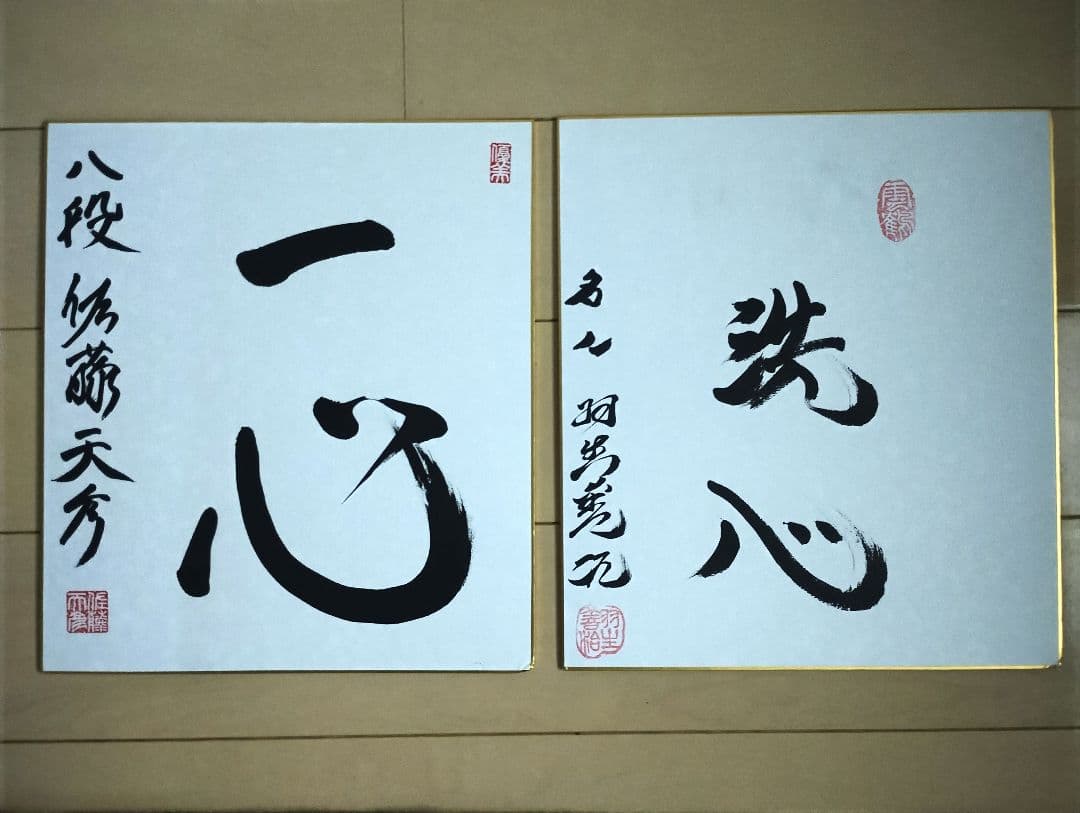 優美
一心
八段 佐藤天彦
佐藤天彦
雲鶴
洗心
名人 羽生善治
羽生善治